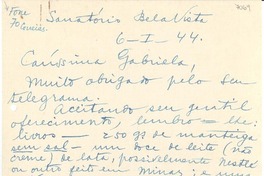 Sanatório Bela Vista
Fone
70 Corrêas.
7069
6-I-44.
Caríssima Gabriela,
Muito obrigado pelo seu
telegrama.
Aceitando seu gentil
oferecimento, lembro-lhe:
livros — 250 gs de manteiga
sem sal — um doce de leite (não
creme) de lata, possivelmente Nestlé
ou outro feito em Minas; e um